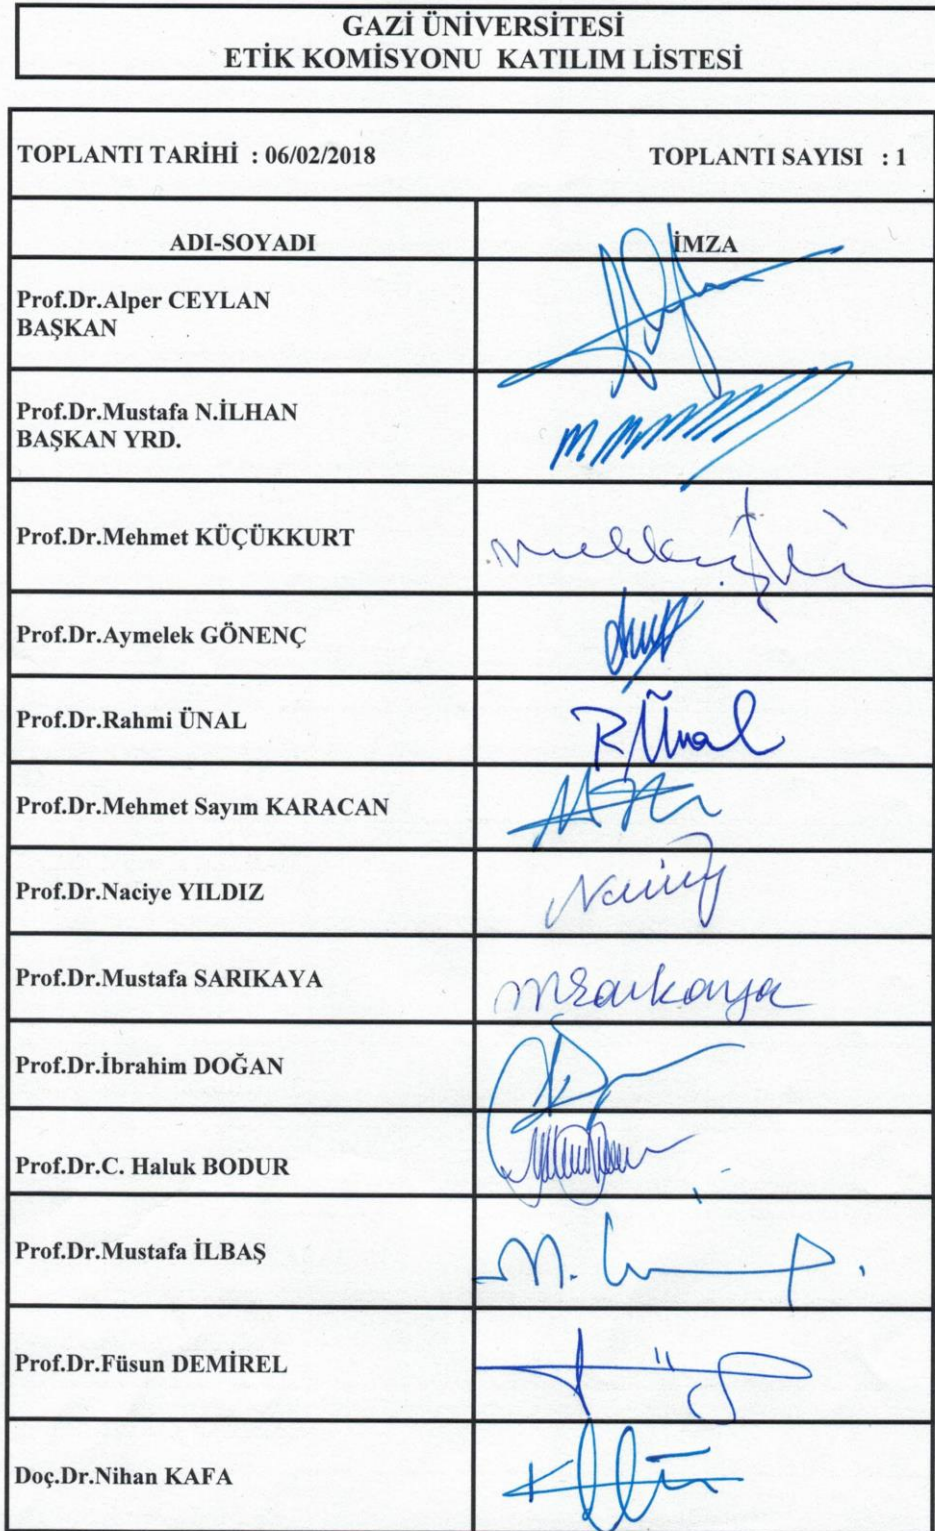 GAZİ ÜNİVERSİTESİ
ETİK KOMİSYONU KATILIM LİSTESİ
TOPLANTI TARİHİ : 06/02/2018 TOPLANTI SAYISI : 1
ADI-SOYADI İMZA
Prof.Dr.Alper CEYLAN
BAŞKAN
Prof.Dr.Mustafa N.İLHAN
BAŞKAN YRD.
Prof.Dr.Mehmet KÜÇÜKKURT
Prof.Dr.Aymelek GÖNENÇ
Prof.Dr.Rahmi ÜNAL
R.Ünal
Prof.Dr.Mehmet Sayım KARACAN
Prof.Dr.Naciye YILDIZ
Prof.Dr.Mustafa SARIKAYA
MSarıkaya
Prof.Dr.İbrahim DOĞAN
Prof.Dr.C. Haluk BODUR
Prof.Dr.Mustafa İLBAŞ
Prof.Dr.Füsun DEMİREL
Doç.Dr.Nihan KAFA